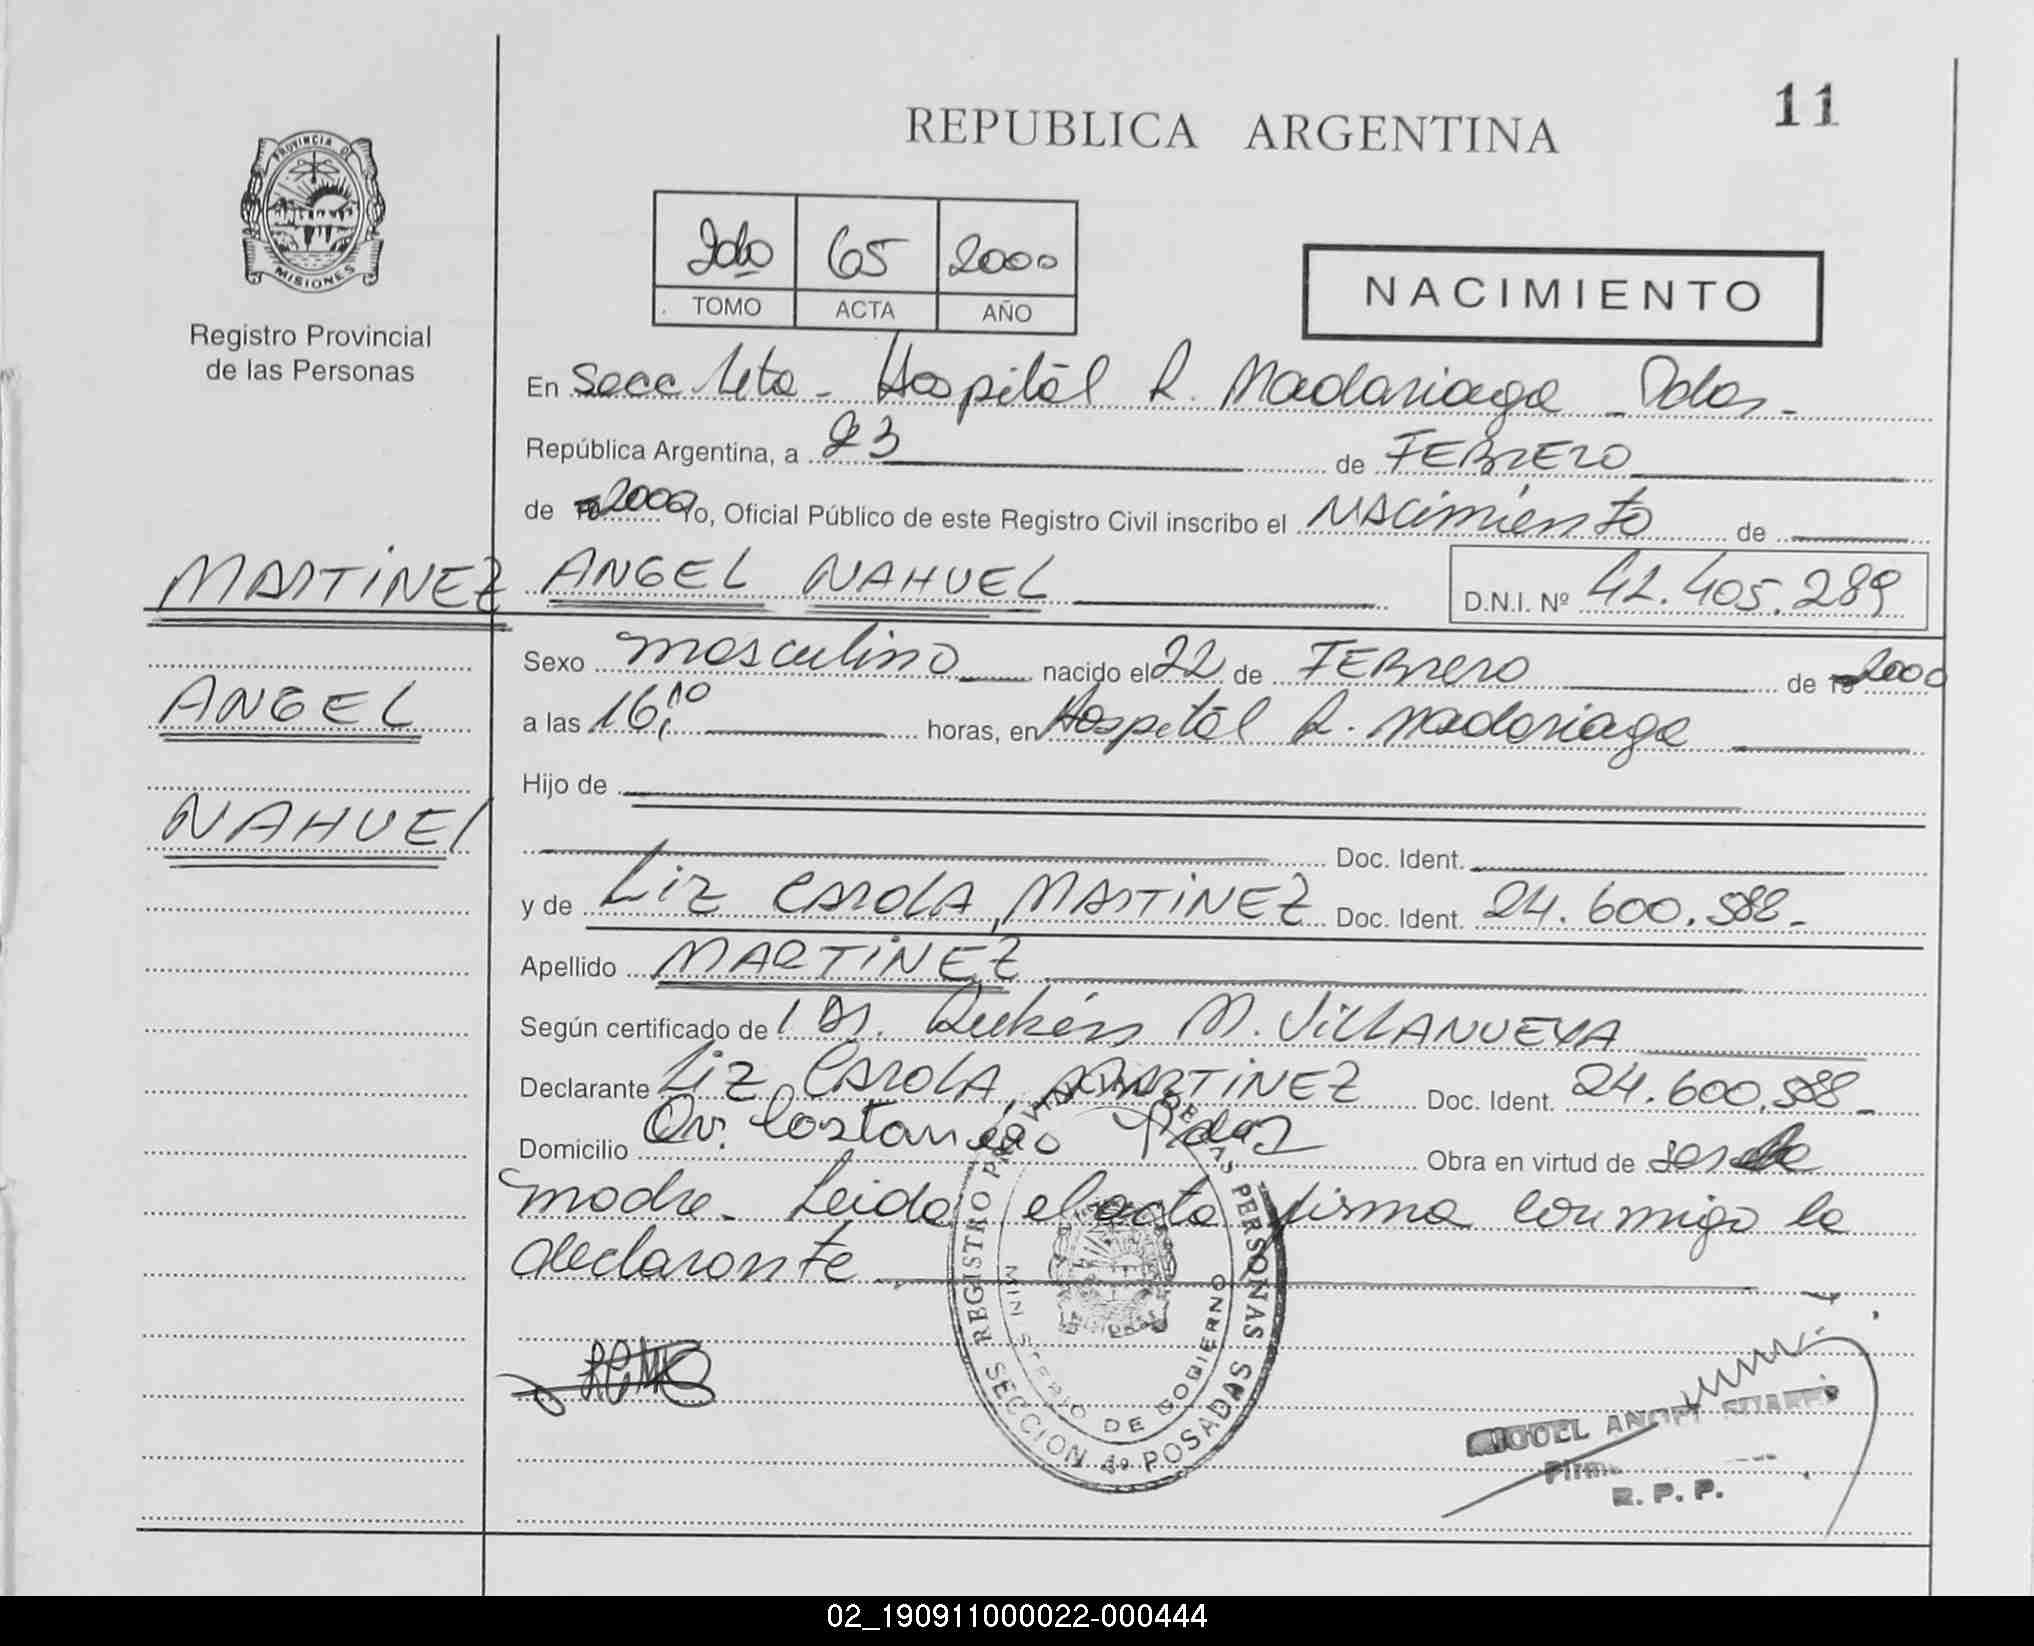 11
REPUBLICA ARGENTINA
PROVINCIA DE
MISIONES
Registro Provincial
de las Personas
2do 65 2000
TOMO ACTA AÑO
NACIMIENTO
En Secc 4ta - Hospital R. Madariaga - Pdas.-
República Argentina, a 23 de FEBRERO
de 2000 Yo, Oficial Público de este Registro Civil inscribo el NACimiento de
MARTINEZ ANGEL NAHUEL D.N.I. Nº 42.405.289
Sexo masculino nacido el 22 de FEBrero de 2000
ANGEL
a las 16,10 horas, en Hospital R. Madariaga
Hijo de
NAHUEl
Doc. Ident.
y de Liz CAROLA, MARTINEZ Doc. Ident. 24.600.588.-
Apellido MARTINEZ
Según certificado de l Dr. Rubén M. VILLANUEVA
Declarante Liz CAROLA, MARTINEZ Doc. Ident. 24.600.588.-
Domicilio Av. Costanera Pdas Obra en virtud de ser la
madre - Leida el acta firma conmigo la
declarante
REGISTRO PROVINCIAL DE LAS PERSONAS
MINISTERIO DE GOBIERNO
SECCION 4º POSADAS
MIGUEL ANGEL SUAREZ
R. P. P.
02_190911000022-000444